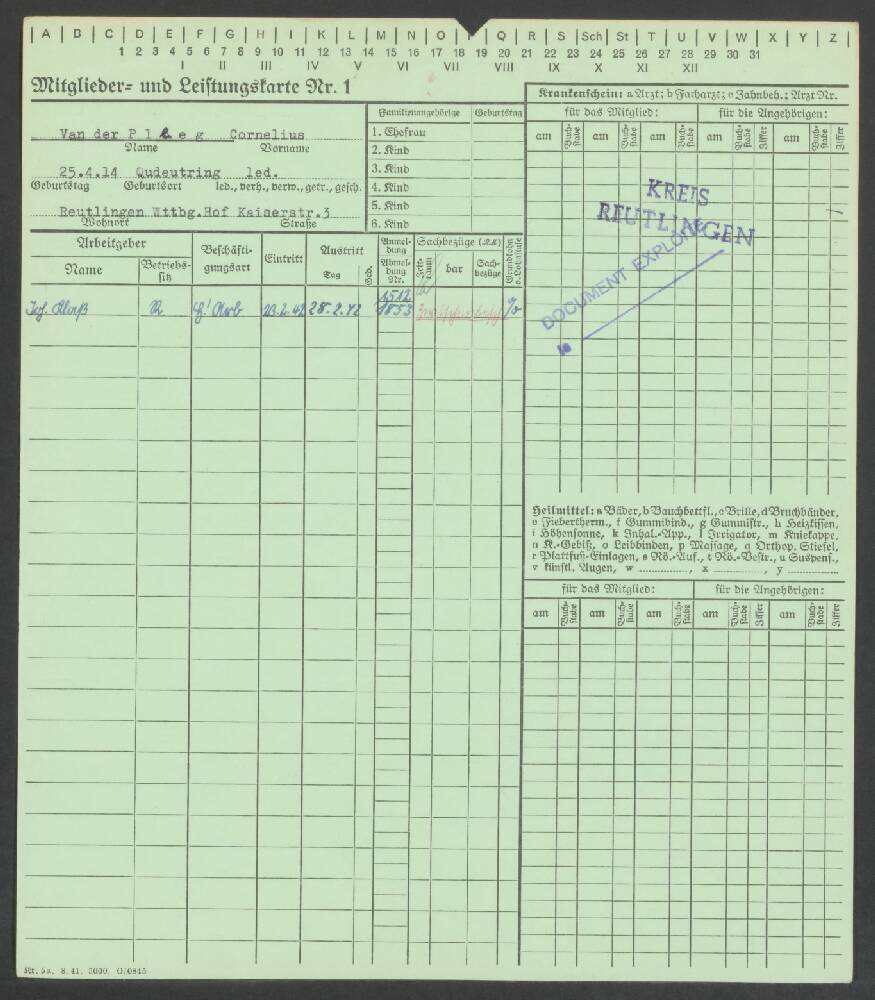 A B C D E F G H I K L M N O Q R S Sch St T U V W X Y Z
1 2 3 4 5 6 7 8 9 10 11 12 13 14 15 16 17 18 19 20 21 22 23 24 25 26 27 28 29 30 31
I II III IV V VI VII VIII IX X XI XII
Mitglieder- und Leistungskarte Nr. 1
Van der Ploeg Cornelius
Name Vorname
25.4.14 Qudeutring led.
Geburtstag Geburtsort led., verh., verw., getr., gesch.
Reutlingen Wttbg. Hof Kaiserstr. 3
Wohnort Straße
Familienangehörige Geburtstag
1. Ehefrau
2. Kind
3. Kind
4. Kind
5. Kind
6. Kind
Krankenschein: a Arzt; b Facharzt; c Zahnbeh.; Arzt Nr.
für das Mitglied: für die Angehörigen:
am Buch-stabe am Buch-stabe am Buch-stabe am Buch-stabe Ziffer am Buch-stabe Ziffer
KREIS
REUTLINGEN
DOCUMENT EXPLOITED
Arbeitgeber Beschäfti-gungsart Eintritt Austritt Anmel-dung Abmel-dung Nr. Sachbezüge (RM) Grundlohn o. Lohnstufe
Name Betriebs-sitz Tag Zeit-raum bar Sach-bezüge
R 23.2.42 28.2.42 1512
1853 %
Heilmittel: a Bäder, b Bauchbettfl., c Brille, d Bruchbänder,
e Fiebertherm., f Gummibind., g Gummistr., h Heizkissen,
i Höhensonne, k Inhal.-App., l Irrigator, m Kniekappe,
n K.-Gebiß, o Leibbinden, p Massage, q Orthop. Stiefel,
r Plattfuß-Einlagen, s Rö.-Auf., t Rö.-Bestr., u Suspens.,
v künstl. Augen, w , x , y
für das Mitglied: für die Angehörigen:
am Buch-stabe am Buch-stabe am Buch-stabe am Buch-stabe Ziffer am Buch-stabe Ziffer
Nr. 5a. 8. 41. 5000. O/0845